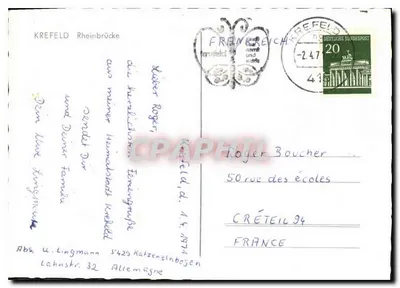 KREFELD Rheinbrücke
FRANKREICH
KREFELD
-2.4.7
415
DEUTSCHE BUNDESPOST
20
Krefeld, d. 1.4.1971
Lieber Roger,
die herzlichsten Feriengrüße
aus meiner Heimatstadt Krefeld
sendet Dir
und Deiner Familie
Dein Uwe Lingmann
CPAPHIL
Roger Boucher
50 rue des écoles
CRÉTEIL 94
FRANCE
Abs. U. Lingmann 5429 Katzenelnbogen
Lahnstr. 32 Allemagne